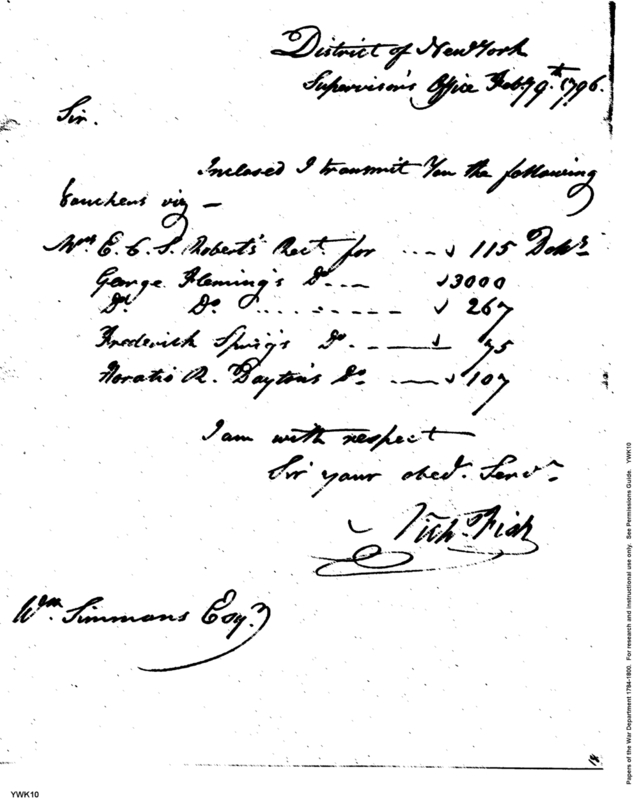 District of New York
Supervisor's Office Feby 9th 1796.
Sir.
Inclosed I transmit You the following
Vouchers viz —
Mrs E. C. S. Roberts' Rect. for ---- 115 Dolrs
George Fleming's Do --- 3000
Do. Do. ... ------- 267
Frederick Sprigs Do. - —— 75
Horatio R. Dayton's Do. - —— 107
I am with respect
Sir your obed. Servt.
Nich. Fish
Wm. Simmons Esqr.
YWK10
Papers of the War Department 1784-1800. For research and instructional use only. See Permissions Guide. YWK10